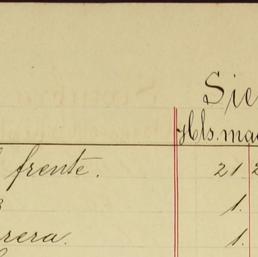 Sie
Hls. mac
frente. 21 2
1.
rera. 1.